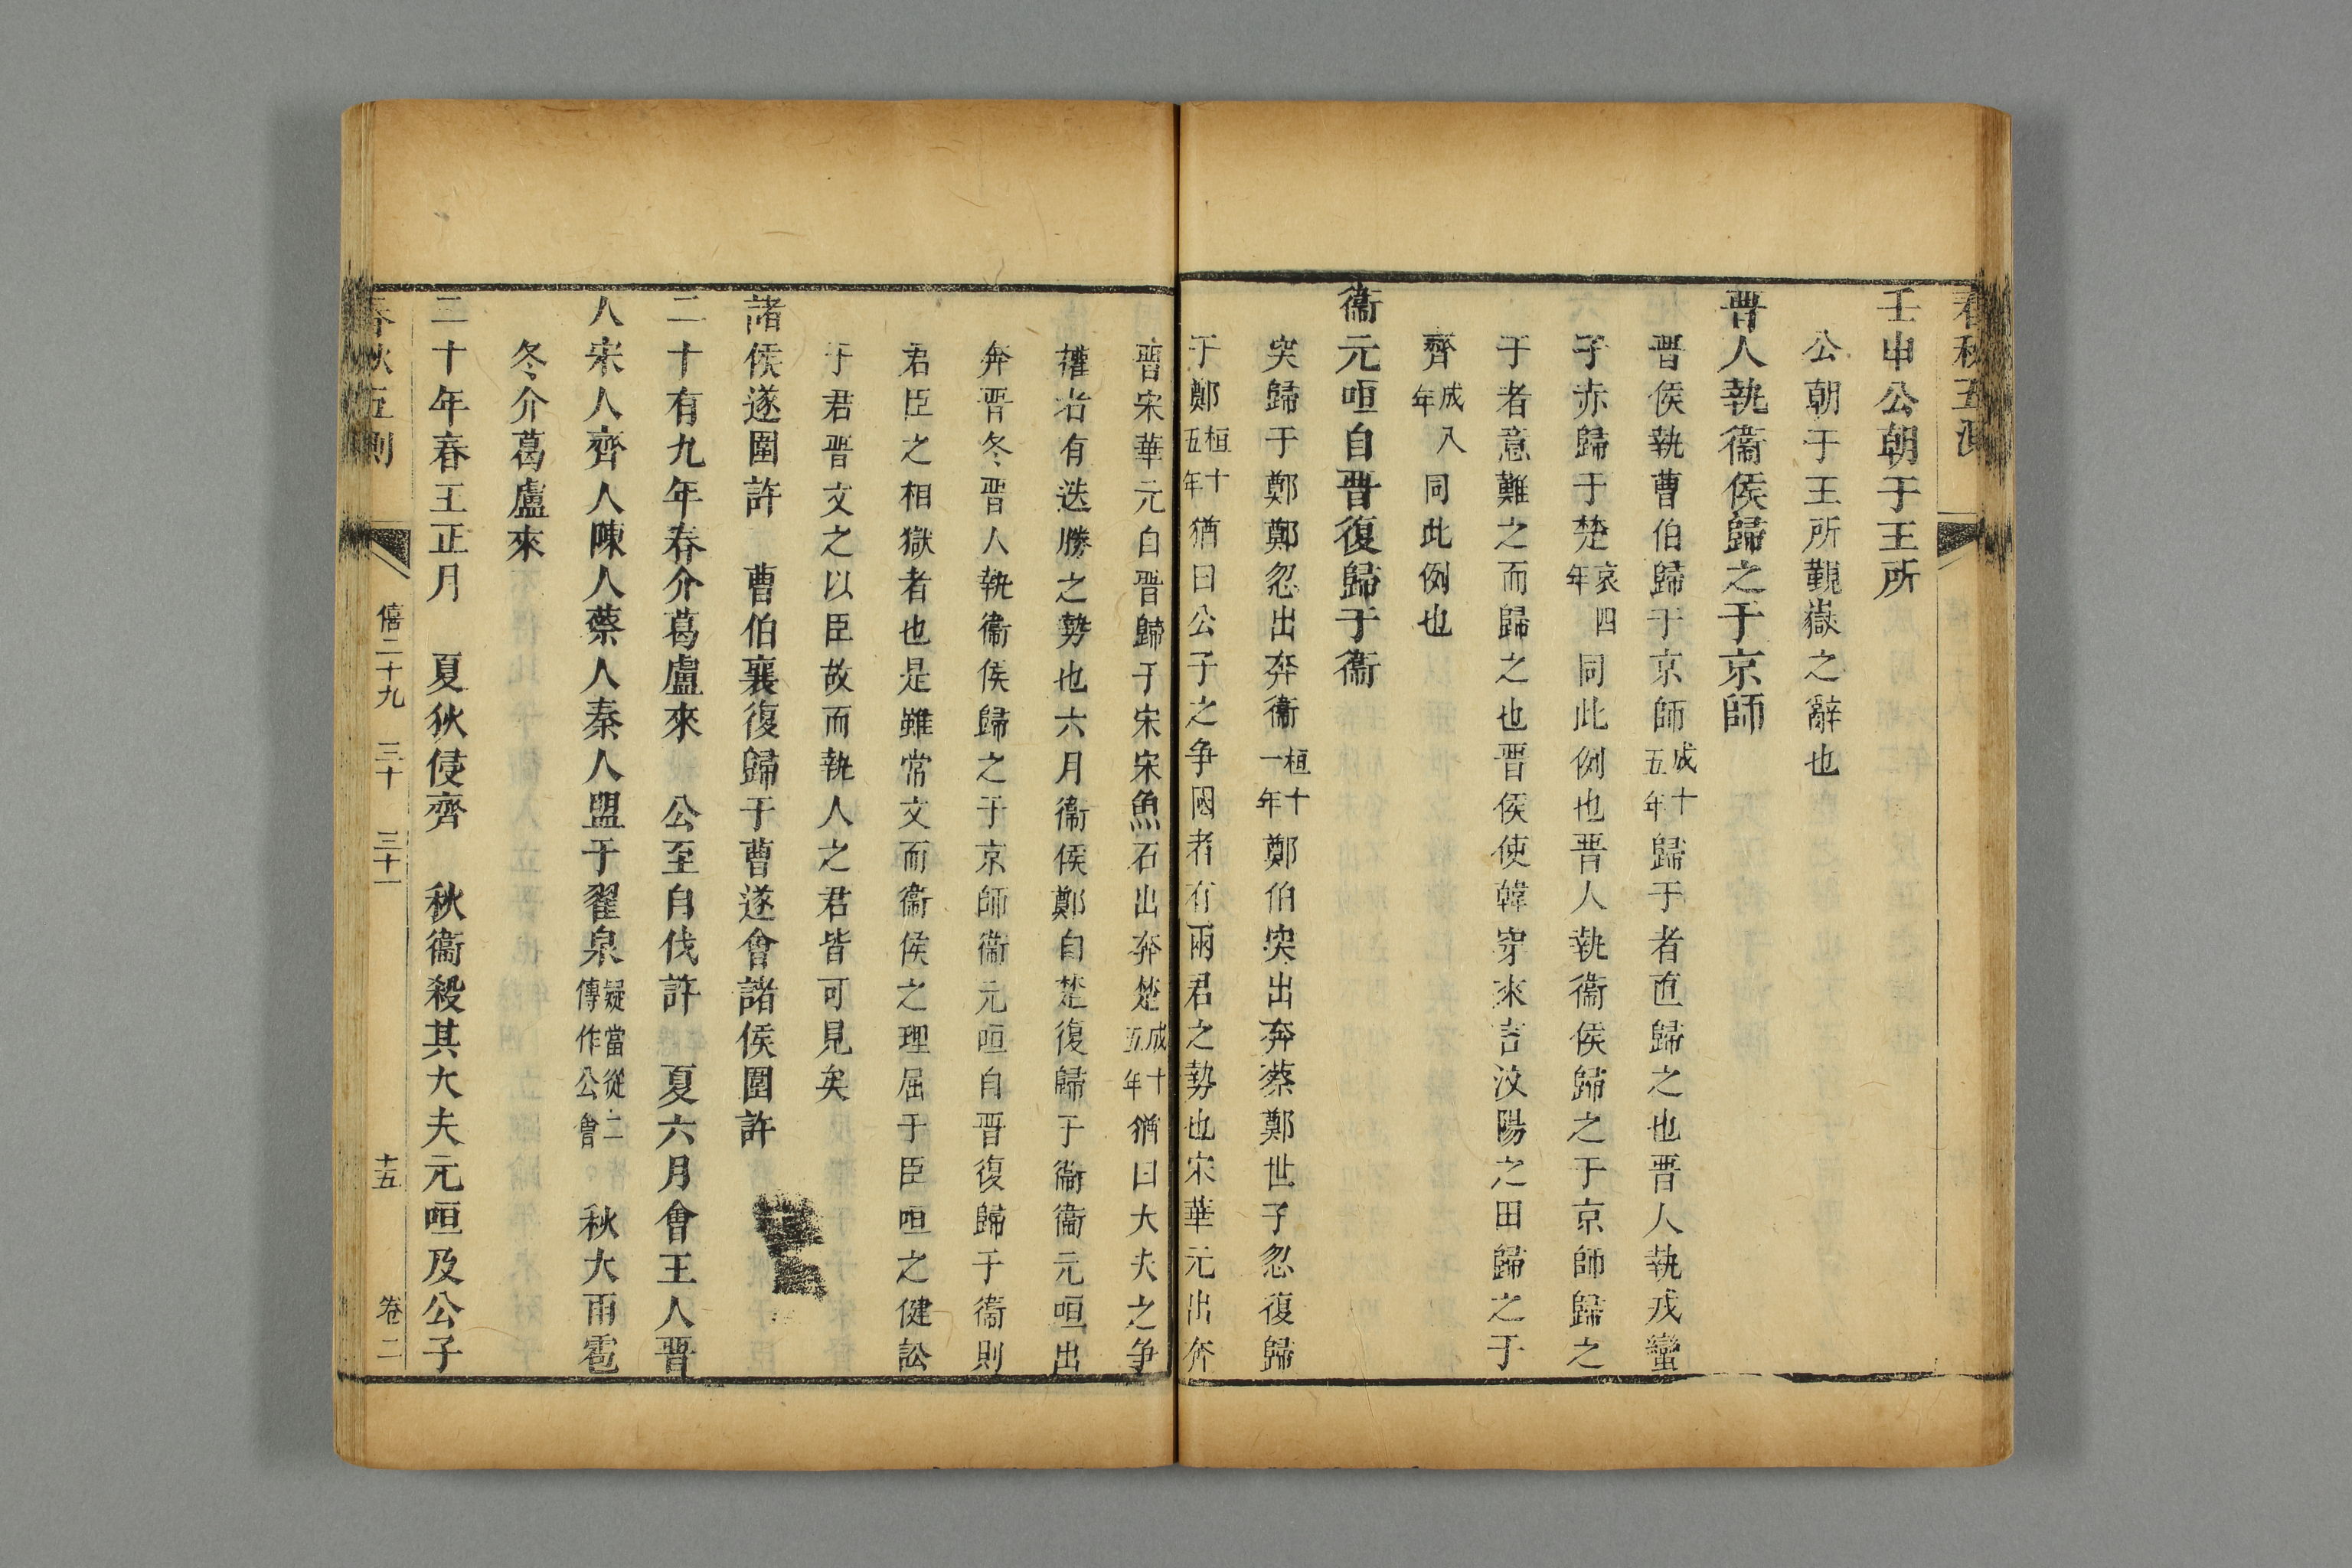 春秋五測
壬申公朝于王所
公朝于王所覲嶽之辭也
晉人執衞侯歸之于京師
晉侯執曹伯歸于京師成十五年歸于者直歸之也晉人執戎蠻
子赤歸于楚哀四年同此例也晉人執衞侯歸之于京師歸之
于者意難之而歸之也晉侯使韓穿來言汶陽之田歸之于
齊成八年同此例也
衞元咺自晉復歸于衞
突歸于鄭鄭忽出奔衞桓十一年鄭伯突出奔蔡鄭世子忽復歸
于鄭桓十五年猶曰公子之爭國者有兩君之勢也宋華元出奔
晉宋華元自晉歸于宋宋魚石出奔楚成十五年猶曰大夫之爭
權者有迭勝之勢也六月衞侯鄭自楚復歸于衞衞元咺出
奔晉冬晉人執衞侯歸之于京師衞元咺自晉復歸于衞則
君臣之相獄者也是雖常文而衞侯之理屈于臣咺之健訟
于君晉文之以臣故而執人之君皆可見矣
諸侯遂圍許　曹伯襄復歸于曹遂會諸侯圍許
二十有九年春介葛盧來　公至自伐許　夏六月會王人晉
人宋人齊人陳人蔡人秦人盟于翟泉疑當從二傳作公會。秋大雨雹
冬介葛盧來
三十年春王正月　夏狄侵齊　秋衞殺其大夫元咺及公子
春秋五測　僖二十九　三十　三十一　十五　卷二